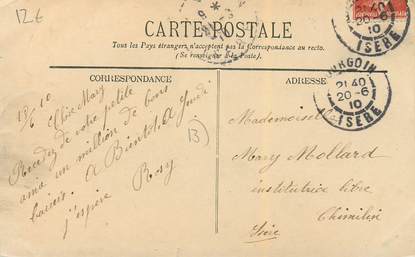 12€
CARTE POSTALE
Tous les Pays étrangers n'acceptent pas la Correspondance au recto.
(Se renseigner à la Poste).
CORRESPONDANCE
ADRESSE
BOURGOIN
21 40
20 - 6
10
ISÈRE
21 40
20 - 6
10
ISÈRE
18/6 10
Chère Mary
Recevez de votre petite
amie un million de bons
baisers. A Bientôt, à
j'espère Rosy
13
Mademoiselle
Mary Mollard
institutrice libre
Chimilin
Isère